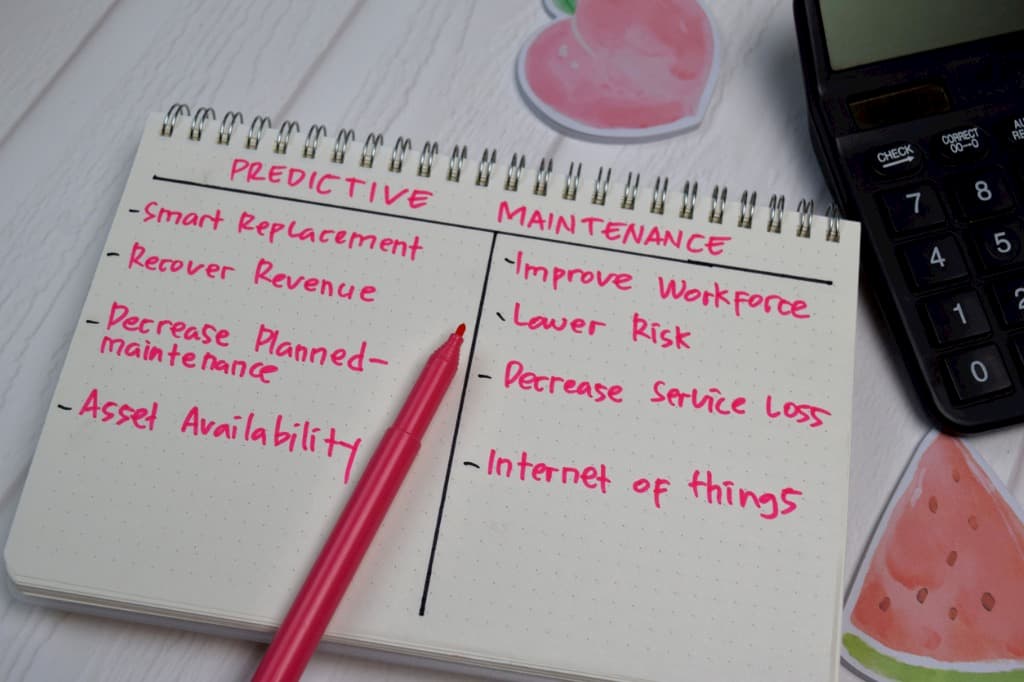 PREDICTIVE MAINTENANCE
-Smart Replacement
-Recover Revenue
-Decrease Planned-
maintenance
-Asset Availability
-Improve Workforce
-Lower Risk
-Decrease Service Loss
-Internet of things
CHECK
CORRECT
00→0
7 8
4 5
1 2
0